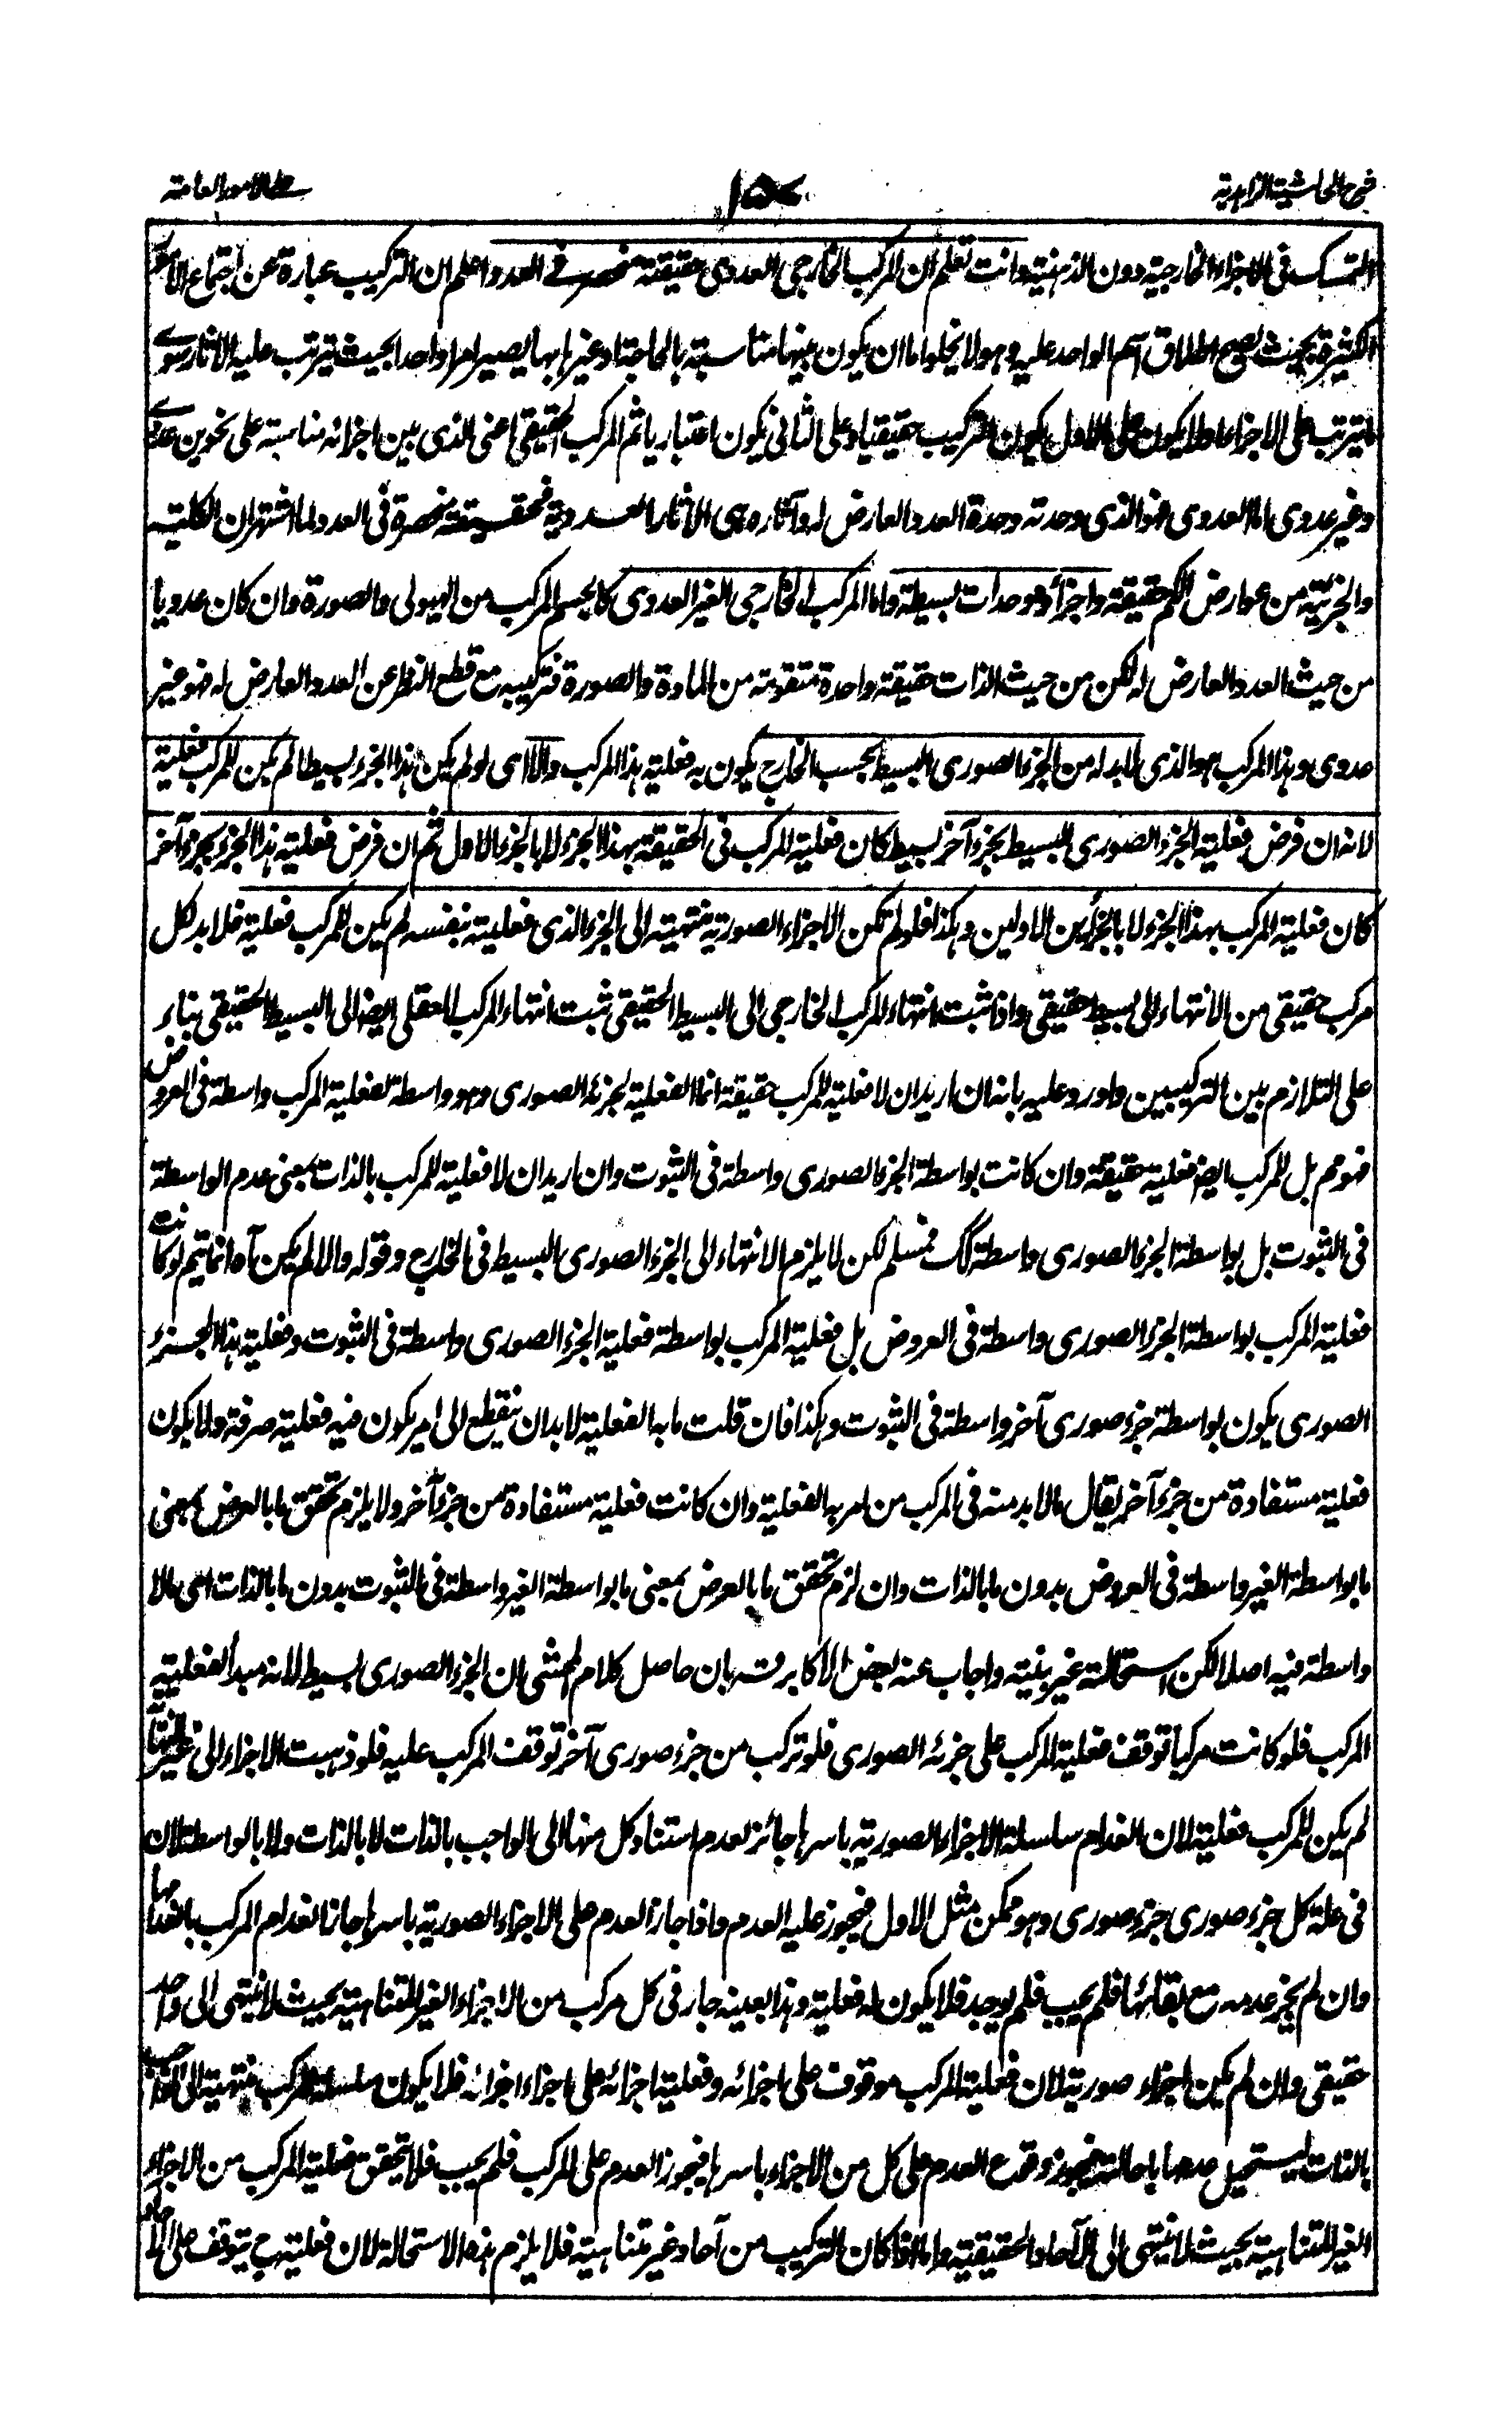 شرح الحاشية الزاهدية
١٥٨
على الامور العامة
التمسك فى الاجزاء الخارجية دون الذهنية وانت تعلم ان المركب الخارجى العددى حقيقته منحصر فے العدد اعلم ان التركيب عبارة عن اجتماع الامور
الكثيرة بحيث يصح اطلاق اسم الواحد عليه وهو لا يخلوا ما ان يكون بينها مناسبة بالحاجة او غيرها بها يصير امرا واحدا بحيث يترتب عليه الاثار سوى
ما يترتب على الاجزاء او لا يكون على الاول يكون التركيب حقيقيا وعلى الثانى يكون اعتباريا ثم المركب الحقيقى اعنى الذى بين اجزائه مناسبة على نحوين عددے
وغير عددى اما العددى فهو الذى وحدته وحدة العدد العارض له وآثاره هى الاثار العددية فحقيقته منحصرة فى العدد لما اشتهر ان الكلية
والجزئية من عوارض الكم حقيقته واجزاؤه وحدات بسيطة واما المركب الخارجى الغير العددى كالجسم المركب من الهيولى والصورة وان كان عدديا
من حيث العدد العارض له لكن من حيث الذات حقيقة واحدة متقومة من المادة والصورة فتركيبه مع قطع النظر عن العدد العارض له فهو غير
عددى وهذا المركب هو الذى لابد له من الجزء الصورى البسيط بحسب الخارج يكون به فعلية هذا المركب والا اى لو لم يكن هذا الجزء بسيطا لم يكن للمركب فعلية
لانه ان فرض فعلية الجزء الصورى البسيط بجزء آخر بسيط كان فعلية المركب فى الحقيقة بهذا الجزء لا بالجزء الاول ثم ان فرض فعلية هذا الجزء بجزء آخر
كان فعلية المركب بهذا الجزء لا بالجزأين الاولين وهكذا فلو لم تكن الاجزاء الصورية منتهية الى الجزء الذى فعليته بنفسه لم يكن للمركب فعلية فلا بد لكل
مركب حقيقى من الانتهاء الى بسيط حقيقى واذا ثبت انتهاء المركب الخارجى الى البسيط الحقيقى ثبت انتهاء المركب العقلى ايضا الى البسيط الحقيقى بناء
على التلازم بين التركيبين واورد عليه بانه ان اريد ان لا فعلية للمركب حقيقة انما الفعلية لجزئه الصورى وهو واسطة لفعلية المركب واسطة فى العروض
فهو مم بل للمركب ايضا فعلية حقيقة وان كانت بواسطة الجزء الصورى واسطة فى الثبوت وان اريد ان لا فعلية للمركب بالذات بمعنى عدم الواسطة
فى الثبوت بل بواسطة الجزء الصورى واسطة كك فمسلم لكن لا يلزم الانتهاء الى الجزء الصورى البسيط فى الخارج وقوله والا لم يكن آه انما يتم لو كانت
فعلية المركب بواسطة الجزء الصورى واسطة فى العروض بل فعلية المركب بواسطة فعلية الجزء الصورى واسطة فى الثبوت وفعلية هذا الجزء
الصورى يكون بواسطة جزء صورى آخر واسطة فى الثبوت وهكذا فان قلت ما به الفعلية لابد ان ينقطع الى امر يكون فيه فعلية صرفة ولا يكون
فعلية مستفادة من جزء آخر يقال ما لابد منه فى المركب من امر به الفعلية وان كانت فعلية مستفادة من جزء آخر ولا يلزم تحقق ما بالعرض بمعنى
ما بواسطة الغير واسطة فى العروض بدون ما بالذات وان لزم تحقق ما بالعرض بمعنى ما بواسطة الغير واسطة فى الثبوت بدون ما بالذات اى ما لا
واسطة فيه اصلا لكن استحالته غير بينة واجاب عنه بعض الاكابر قه بان حاصل كلام المحشى ان الجزء الصورى بسيط لانه مبدأ الفعلية
المركب فلو كانت مركبا توقف فعلية المركب على جزئه الصورى فلو تركب من جزء صورى آخر توقف المركب عليه فلو ذهبت الاجزاء الى غير النهاية
لم يكن للمركب فعلية لان انعدام سلسلة الاجزاء الصورية باسرها جائز لعدم استناد كل منها الى الواجب بالذات لا بالذات ولا بالواسطة لان
فى علة كل جزء صورى جزء صورى وهو ممكن مثل الاول فيجوز عليه العدم واذا جاز العدم على الاجزاء الصورية باسرها جاز انعدام المركب بانعدامها
وان لم يجز عدمه مع بقائها فلم يجب فلم يوجد فلا يكون له فعلية وهذا بعينه جار فى كل مركب من الاجزاء الغير المتناهية بحيث لا ينتهى الى واحد
حقيقى وان لم يكن اجزاء صورية لان فعلية المركب موقوف على اجزائه وفعلية اجزائه على اجزاء اجزائه فلا يكون سلسلة المركب منتهية الى الواجب
بالذات ليستحيل عدمها باحالته فيجوز وقوع العدم على كل من الاجزاء باسرها فيجوز العدم على المركب فلم يجب فلا يتحقق فعلية المركب من الاجزاء
الغير المتناهية بحيث لا ينتهى الى الآحاد الحقيقية واما اذا كان التركيب من آحاد غير متناهية فلا يلزم هذه الاستحالة لان فعليته ح يتوقف على الآحاد